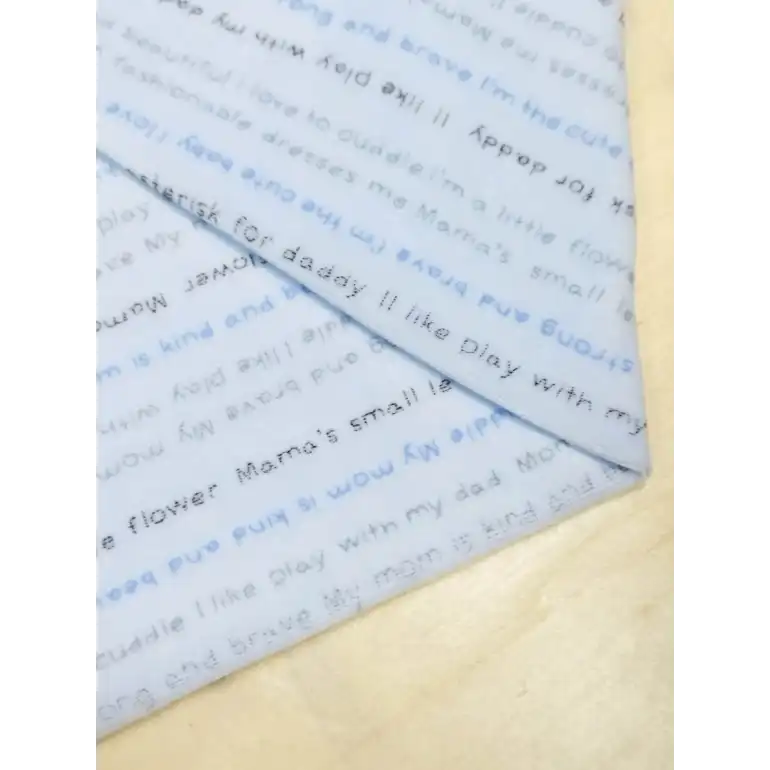 ong and brave I'm the cute
ll like play with my dad
k for daddy
beautiful I love to cuddle I'm a little flowe
fashionable dresses me Mama's small le
strong and brave I'm the cute baby I love
sterisk for daddy ll like play with my
play
ke My
flower Mama
m is kind and be
ddle I like play with
and brave My mom
le flower Mama's small le
ddle My mom is kind and beau
cuddle I like play with my dad Mom
ong and brave My mom is kind and